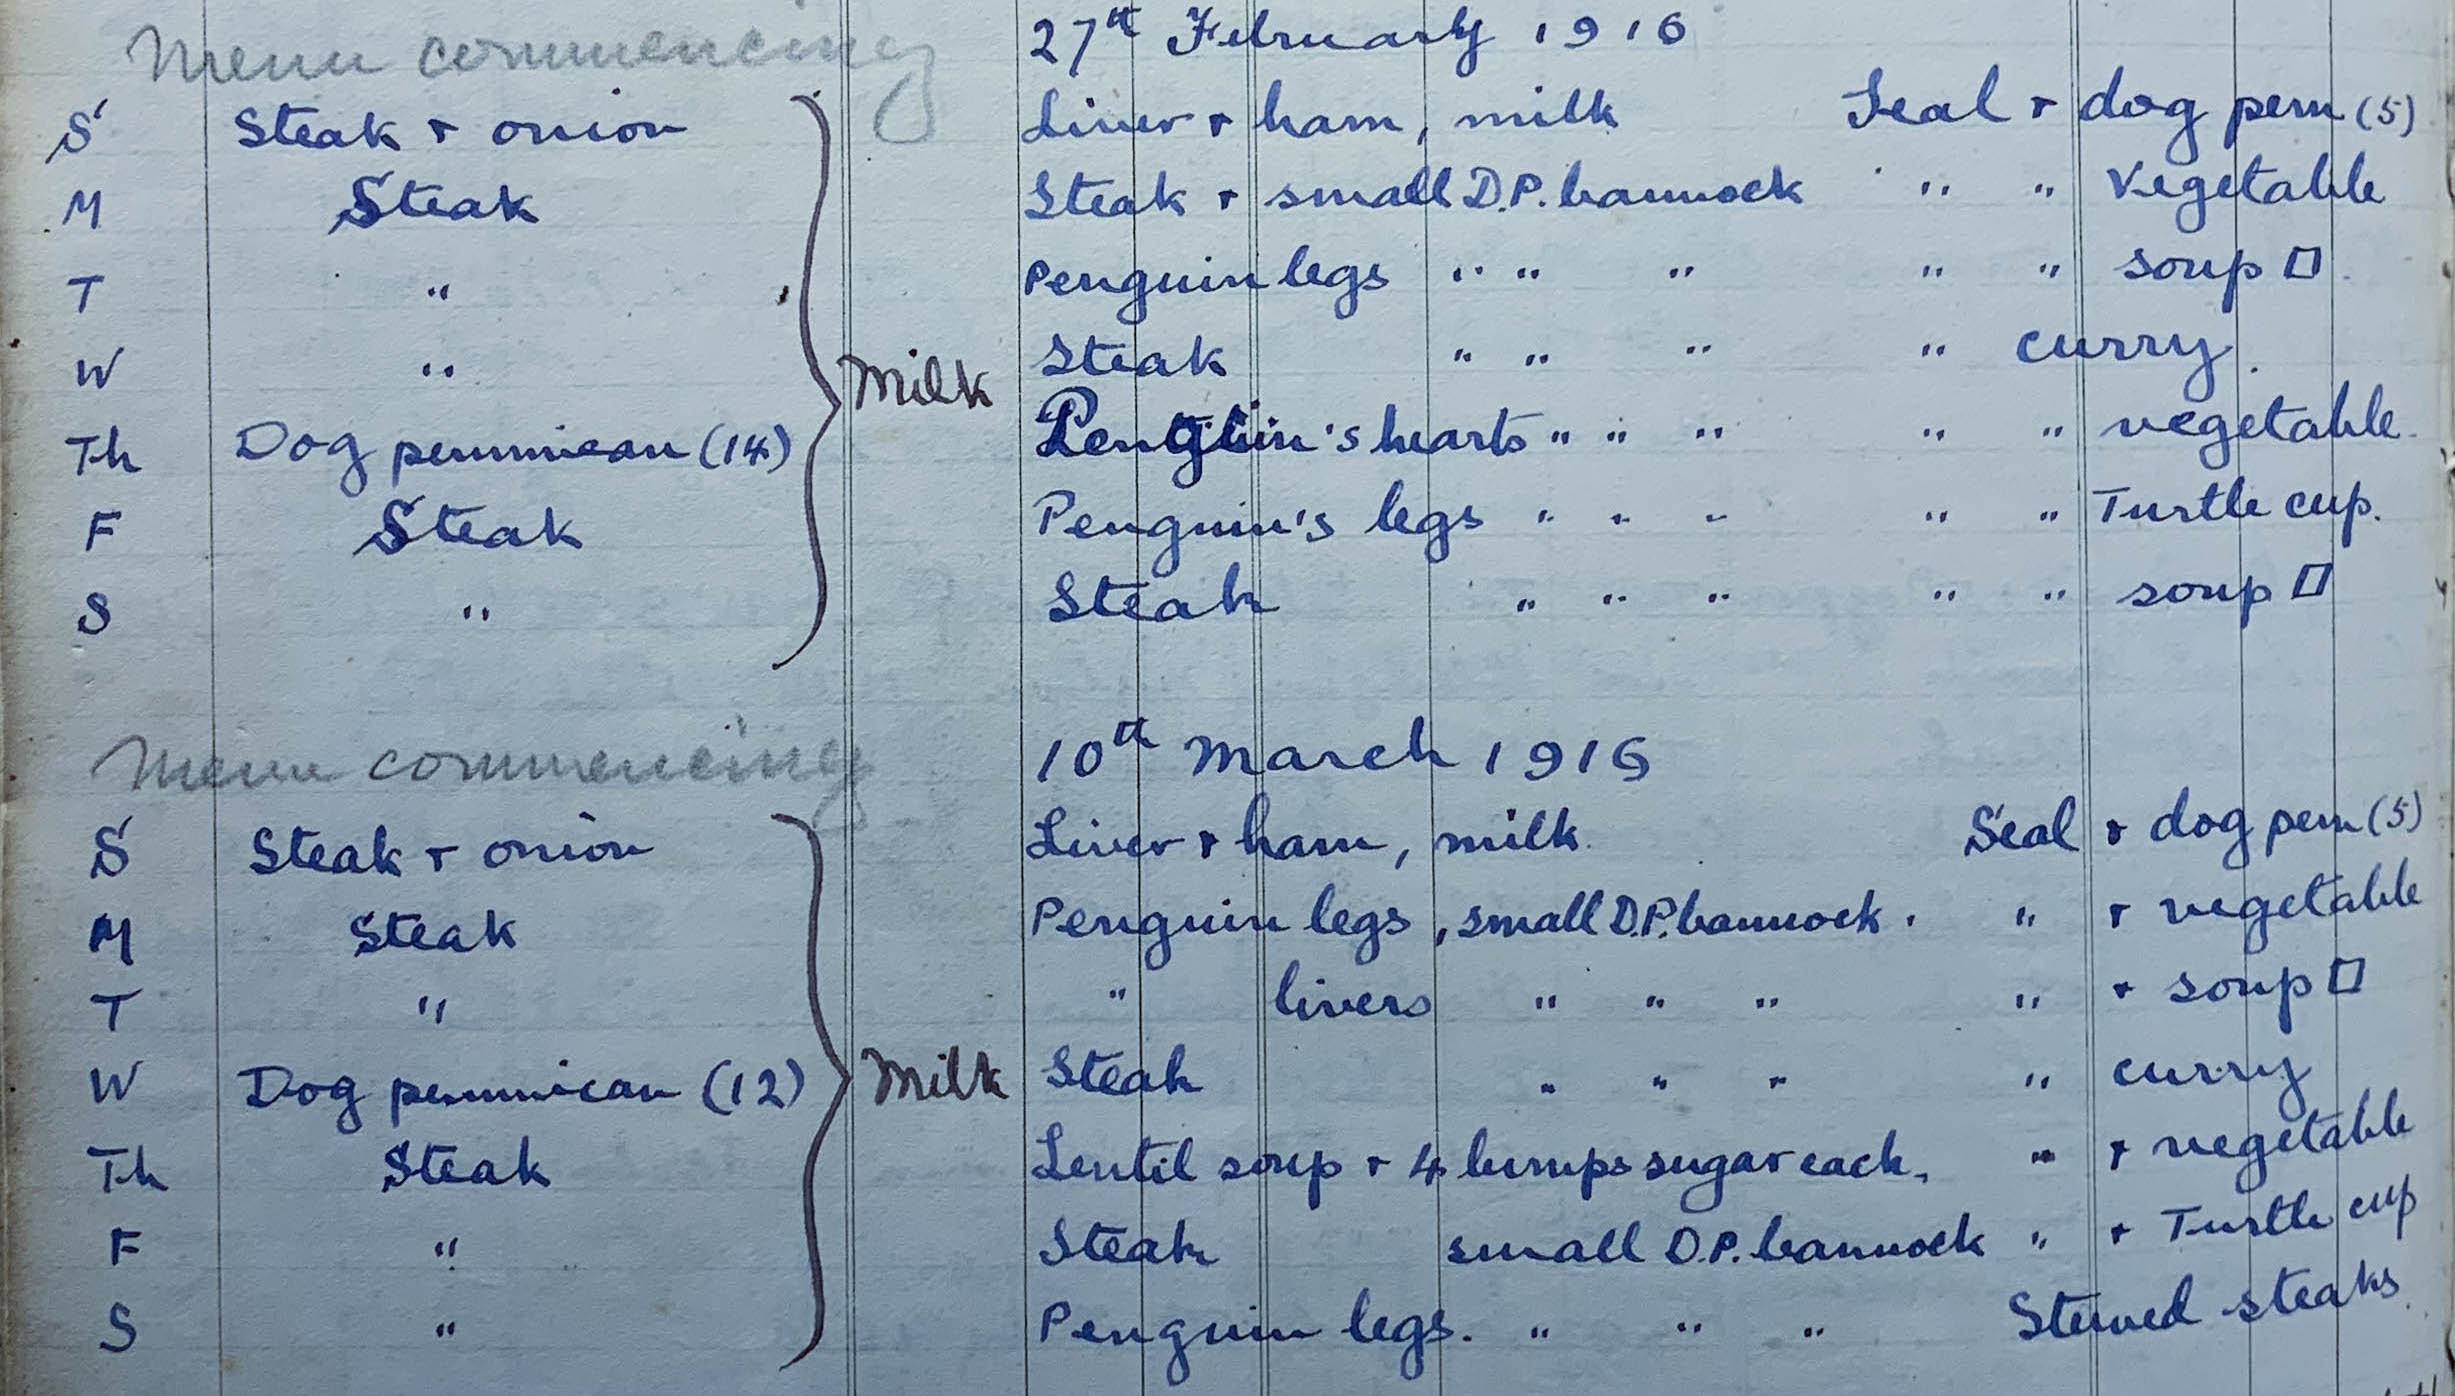 Menu commencing 27th February 1916
S Steak + onion Liver + ham, milk Seal + dog pem (5)
M Steak Steak + small D.P. bannock " " Vegetable
T " Penguin legs " " " " " soup □.
W " Milk Steak " " " " curry.
Th Dog pemmican (14) Penguin's hearts " " " " " vegetable.
F Steak Penguin's legs " " " " " Turtle cup.
S " Steak " " " " " soup □
Menu commencing 10th March 1916
S Steak + onion Liver + ham, milk. Seal + dog pem (5)
M Steak Penguin legs, small D.P. bannock. " + vegetable
T " " livers " " " " + soup □
W Dog pemmican (12) Milk Steak " " " " curry
Th Steak Lentil soup + 4 lumps sugar each, " + vegetable
F " Steak small D.P. bannock " + Turtle cup
S " Penguin legs. " " " Stewed steaks.